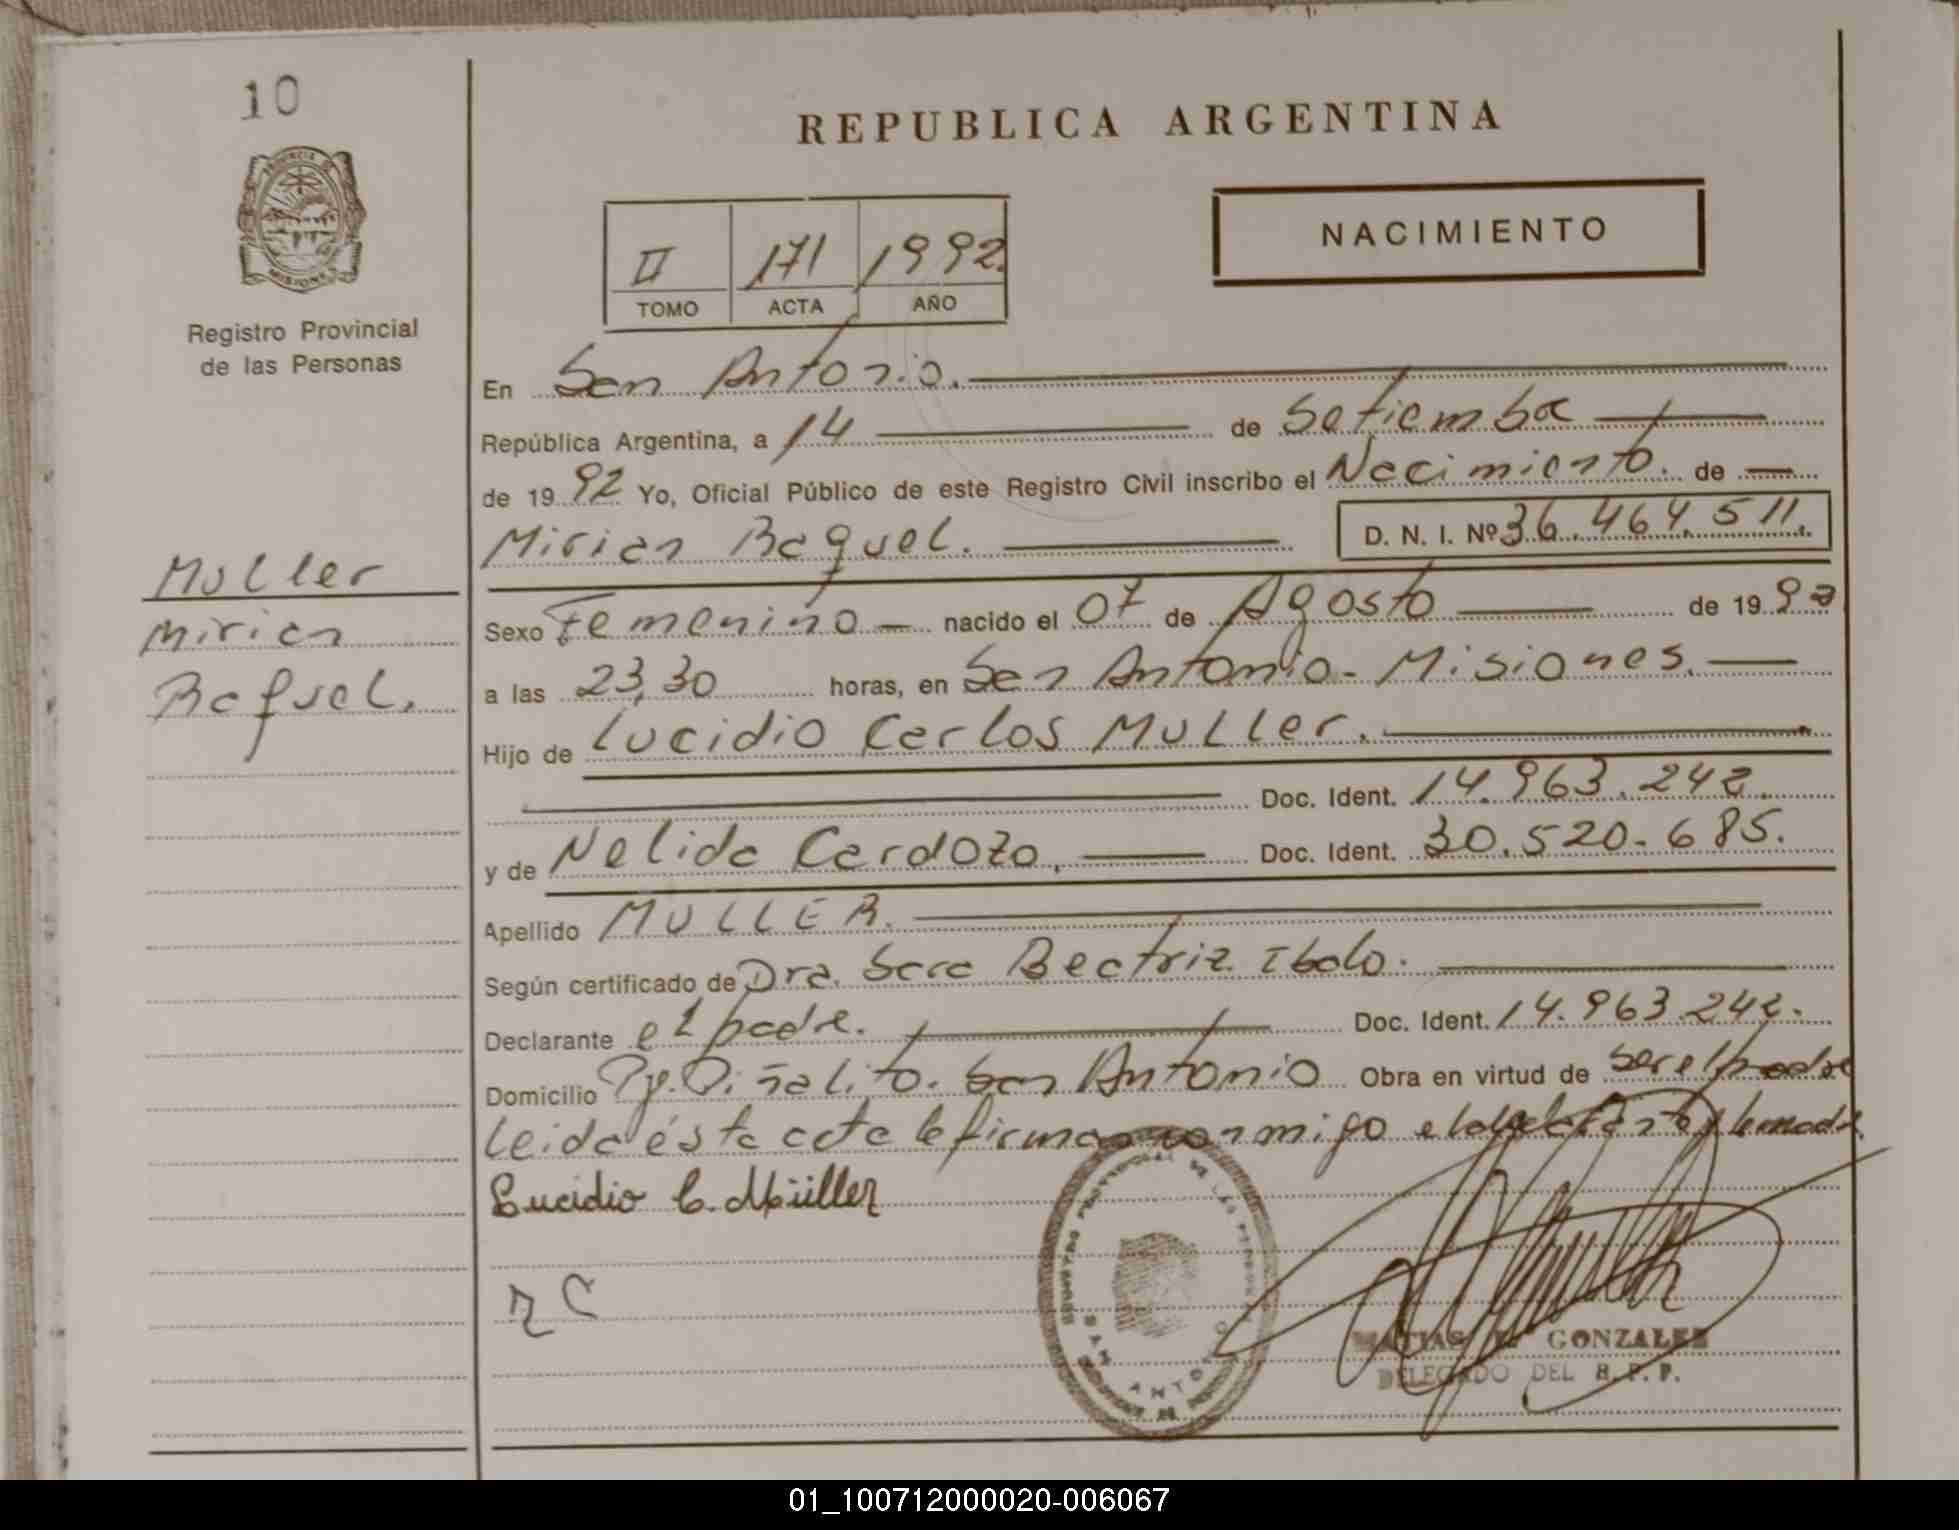 10
PROVINCIA DE
MISIONES
Registro Provincial
de las Personas
Muller
Mirian
Raquel.
REPUBLICA ARGENTINA
II 171 1992.
TOMO ACTA AÑO
NACIMIENTO
En San Antonio.
República Argentina, a 14 de Setiembre
de 1992 Yo, Oficial Público de este Registro Civil inscribo el Nacimiento. de
Mirian Raquel. D. N. I. Nº 36.464.511.
Sexo Femenino nacido el 07 de Agosto de 1992
a las 23,30 horas, en San Antonio - Misiones.
Hijo de Lucidio Carlos Muller.
Doc. Ident. 14.963.242.
y de Nelida Cardozo. Doc. Ident. 30.520.685.
Apellido MULLER.
Según certificado de Dra. Sara Beatriz
Declarante el padre. Doc. Ident. 14.963.242.
Domicilio Piñalito. San Antonio Obra en virtud de ser el padre
Leida ésta acta la firman conmigo el declarante y la madre
Lucidio C. Müller
N C
REGISTRO PROVINCIAL DE LAS PERSONAS
SAN ANTONIO
MATIAS GONZALEZ
DELEGADO DEL R. P. P.
01_100712000020-006067